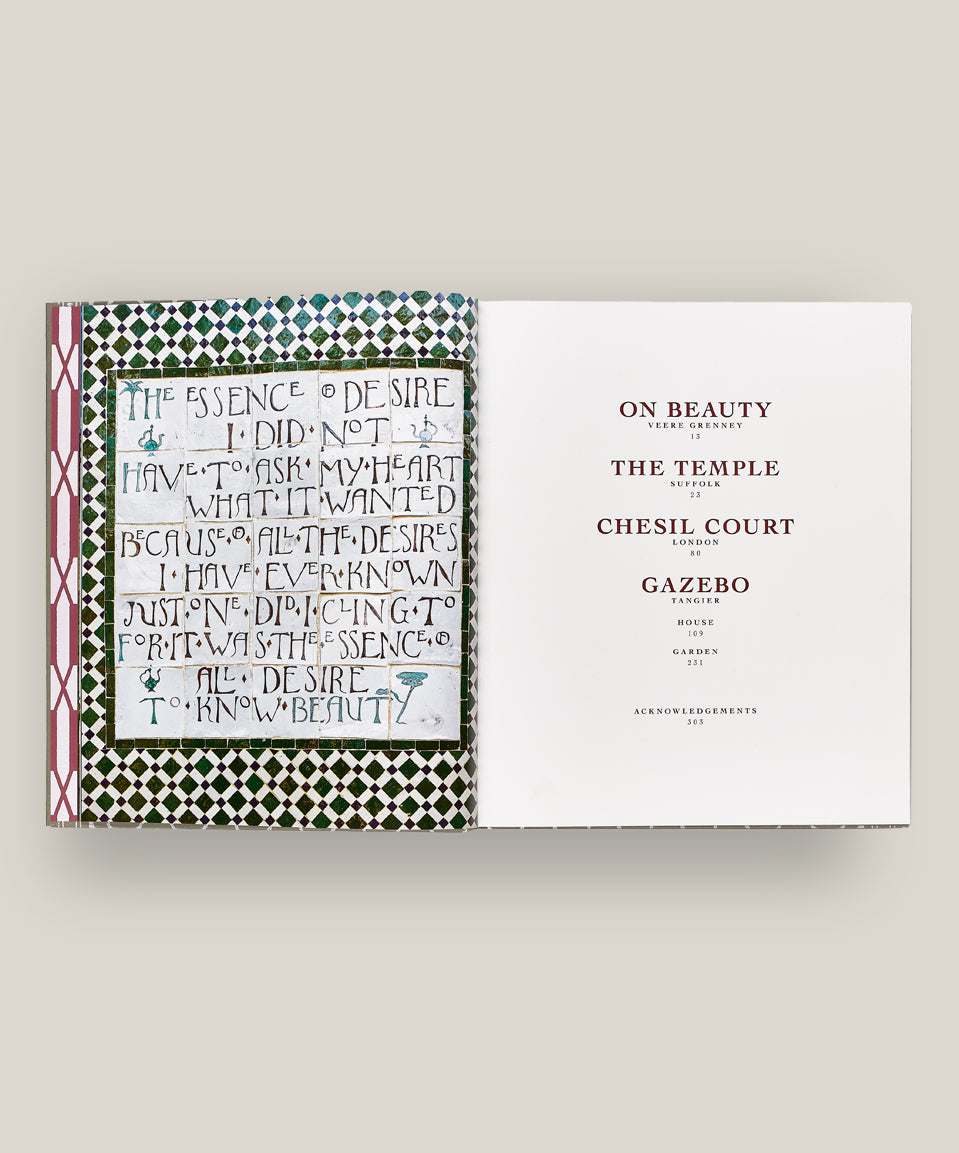 THE ESSENCE OF DESIRE
I · DID · NOT
HAVE · TO · ASK · MY · HEART
WHAT · IT · WANTED
BECAUSE · OF · ALL · THE · DESIRES
I · HAVE · EVER · KNOWN
JUST · ONE · DID · I · CLING · TO
FOR · IT · WAS · THE · ESSENCE · OF
ALL · DESIRE
TO · KNOW · BEAUTY
ON BEAUTY
VEERE GRENNEY
13
THE TEMPLE
SUFFOLK
23
CHESIL COURT
LONDON
80
GAZEBO
TANGIER
HOUSE
109
GARDEN
231
ACKNOWLEDGEMENTS
303